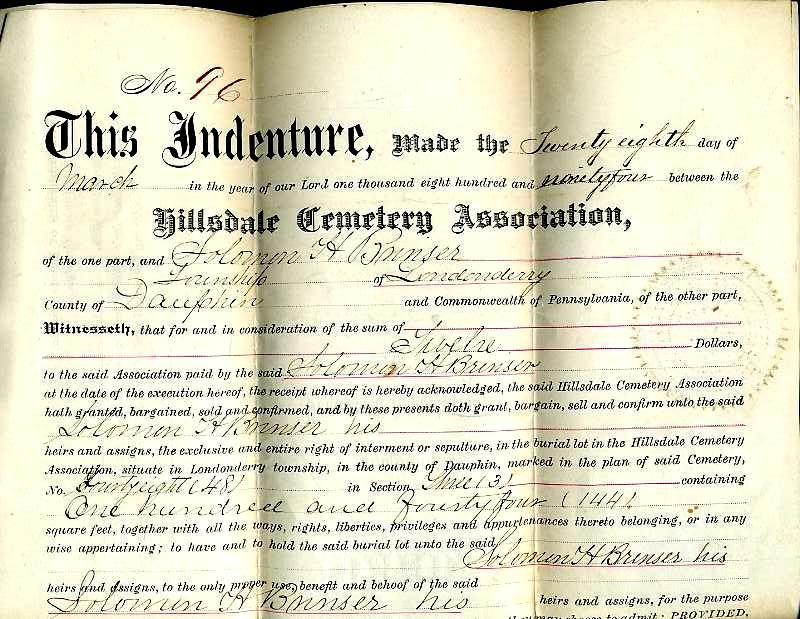 No. 96
This Indenture, Made the Twenty eighth day of
March in the year of our Lord one thousand eight hundred and ninety four between the
Hillsdale Cemetery Association,
of the one part, and Solomon H Brinser
Township of Londonderry
County of Dauphin and Commonwealth of Pennsylvania, of the other part,
Witnesseth, that for and in consideration of the sum of
Twelve Dollars,
to the said Association paid by the said Solomon H Brinser
at the date of the execution hereof, the receipt whereof is hereby acknowledged, the said Hillsdale Cemetery Association
hath granted, bargained, sold and confirmed, and by these presents doth grant, bargain, sell and confirm unto the said
Solomon H Brinser his
heirs and assigns, the exclusive and entire right of interment or sepulture, in the burial lot in the Hillsdale Cemetery
Association, situate in Londonderry township, in the county of Dauphin, marked in the plan of said Cemetery,
No. Fourty eight (48) in Section Three (3) containing
One hundred and fourty four (144)
square feet, together with all the ways, rights, liberties, privileges and appurtenances thereto belonging, or in any
wise appertaining; to have and to hold the said burial lot unto the said Solomon H Brinser his
heirs and assigns, to the only proper use, benefit and behoof of the said
Solomon H Brinser his heirs and assigns, for the purpose
may choose to admit; PROVIDED,